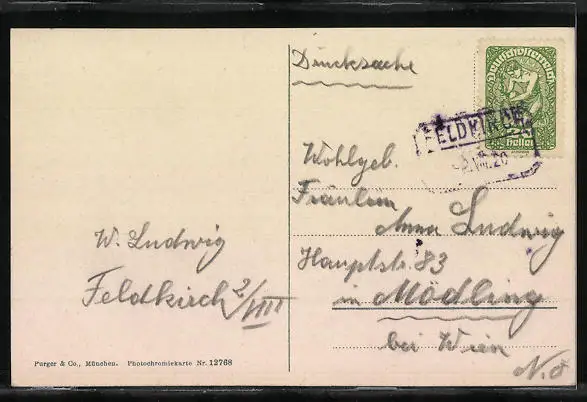 Drucksache
Deutschösterreich
Heller
FELDKIRCH
VIII.20
Wohlgeb.
Fräulein
Anna Ludwig
Hauptstr. 83
in Mödling
bei Wien
N.Ö
W. Ludwig
Feldkirch 2/VIII
Purger & Co., München. Photochromiekarte Nr. 12768